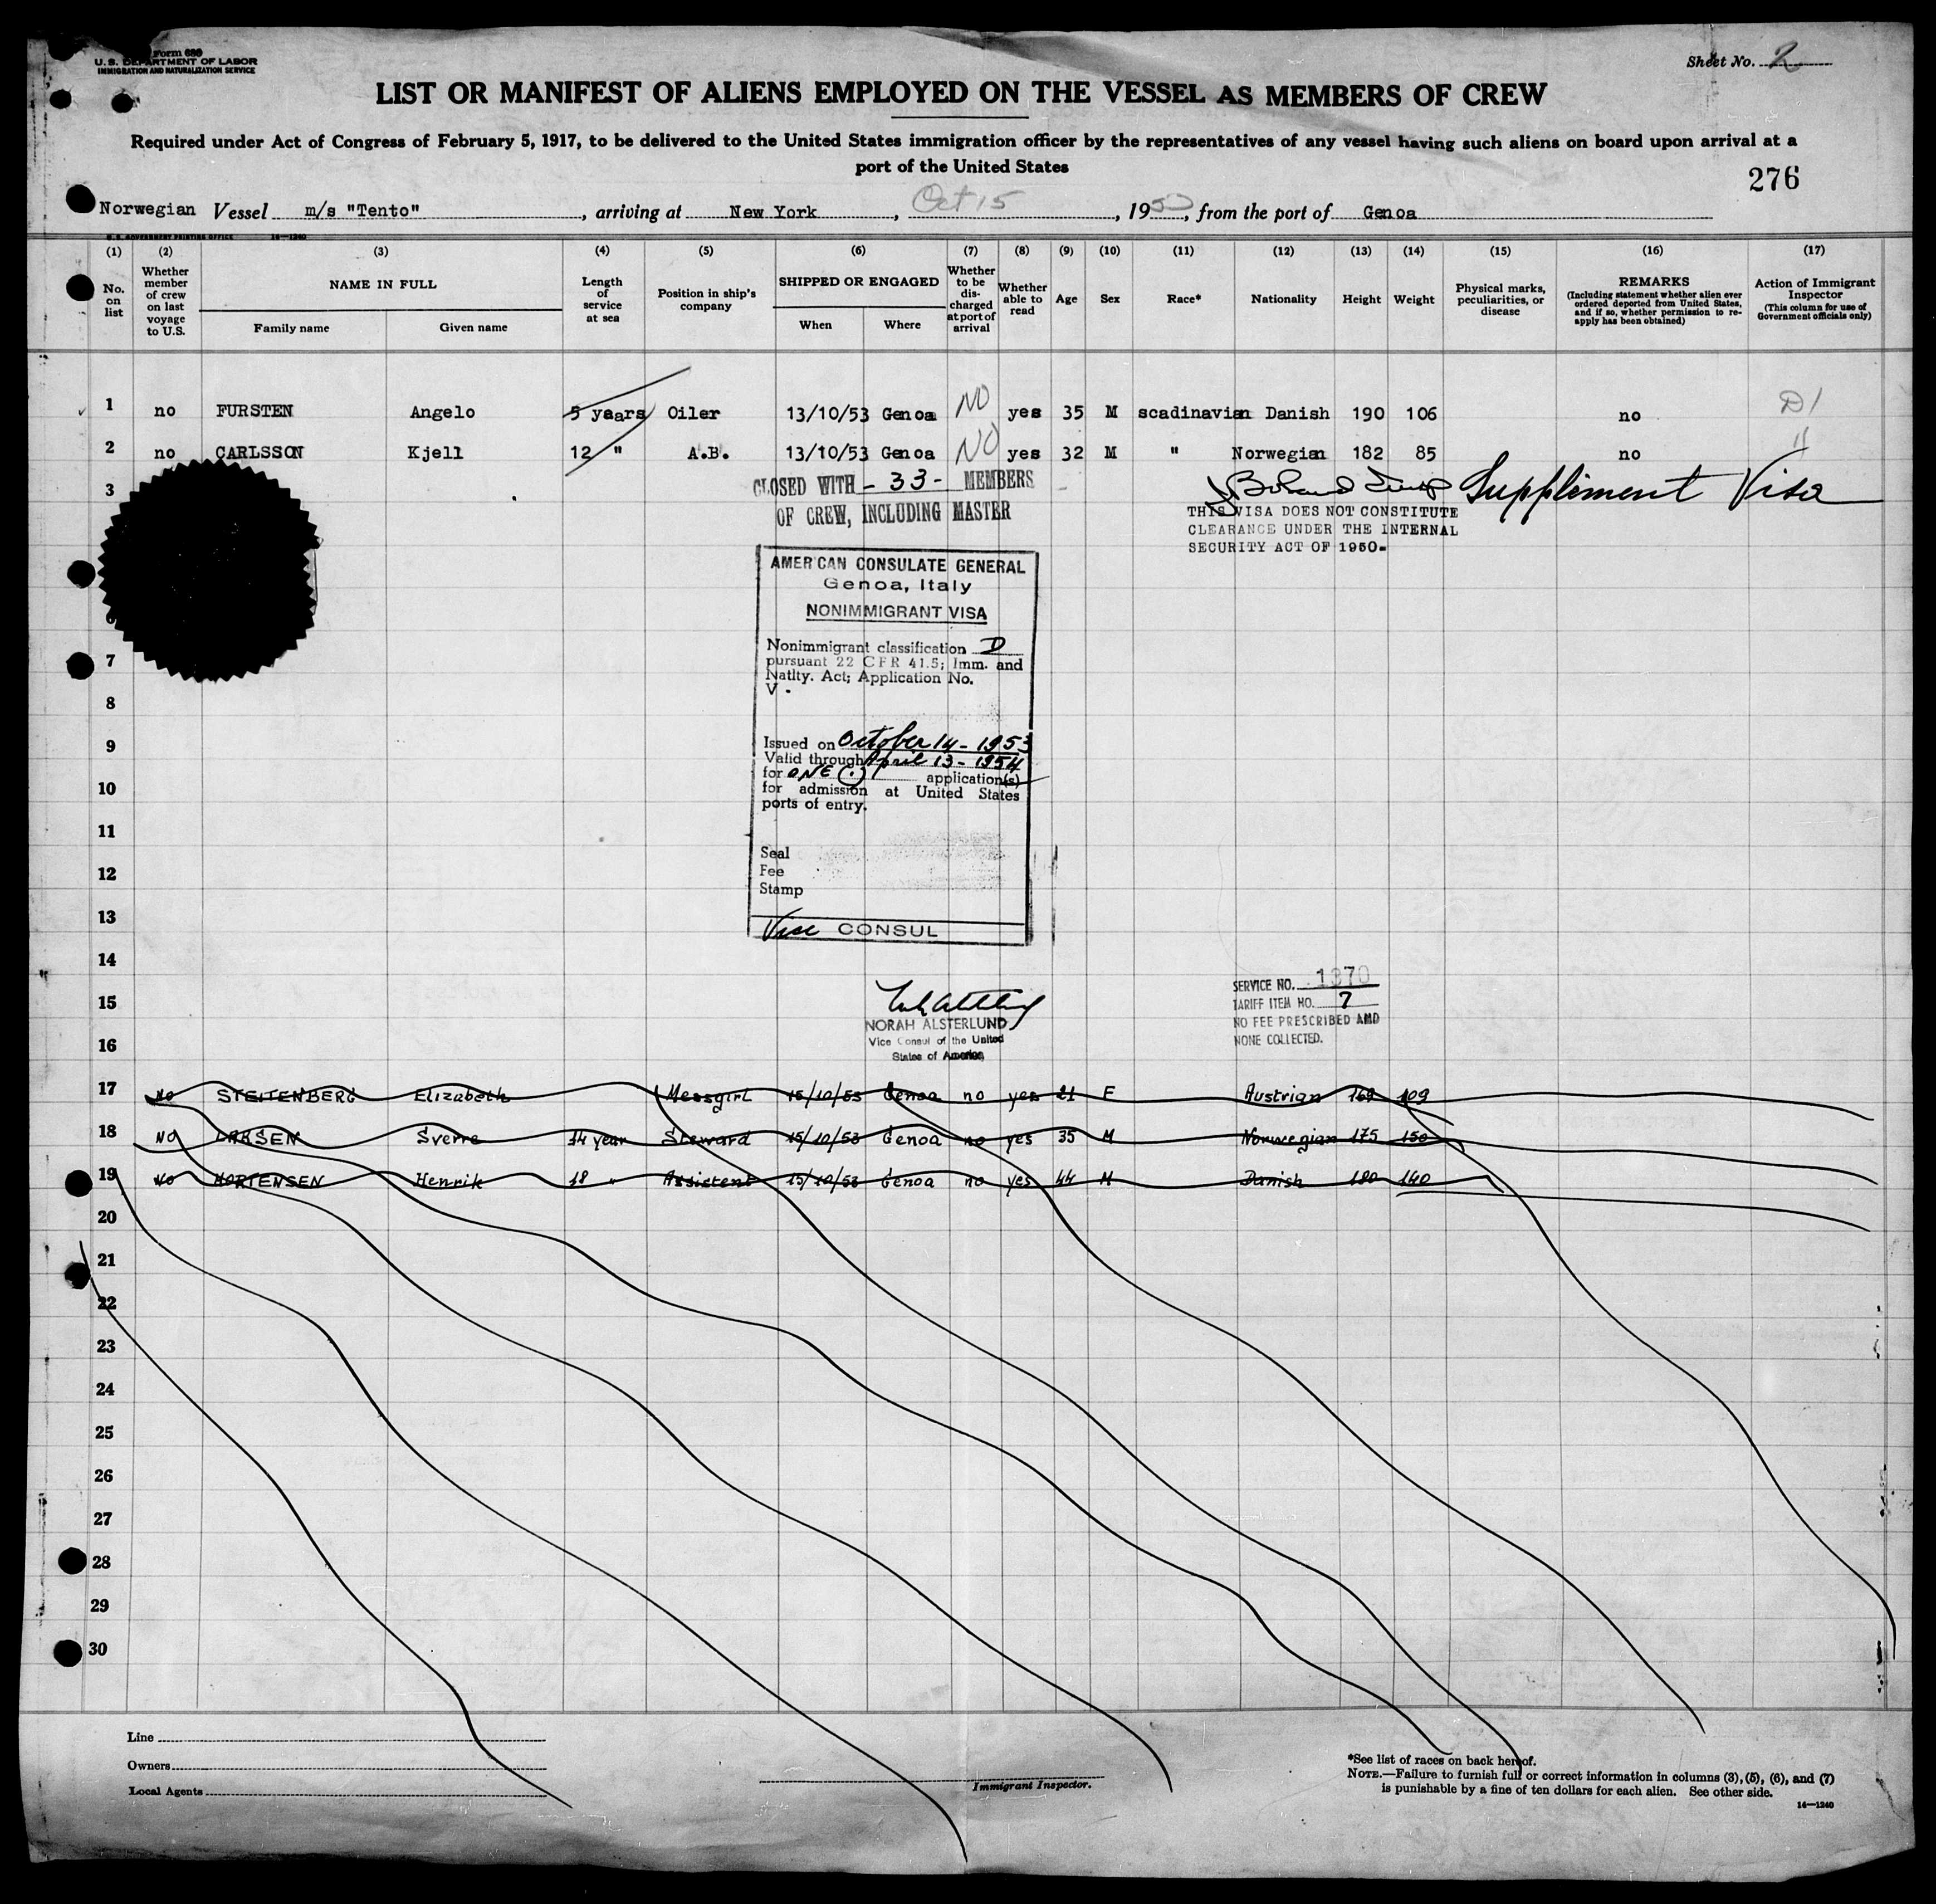 Form 680
U. S. DEPARTMENT OF LABOR
IMMIGRATION AND NATURALIZATION SERVICE
Sheet No. 2
LIST OR MANIFEST OF ALIENS EMPLOYED ON THE VESSEL AS MEMBERS OF CREW
Required under Act of Congress of February 5, 1917, to be delivered to the United States immigration officer by the representatives of any vessel having such aliens on board upon arrival at a
port of the United States
276
Norwegian Vessel m/s "Tento", arriving at New York, Oct 15, 1953, from the port of Genoa
U. S. GOVERNMENT PRINTING OFFICE 16—1240
(1) (2) (3) (4) (5) (6) (7) (8) (9) (10) (11) (12) (13) (14) (15) (16) (17)
No. on list
Whether member of crew on last voyage to U.S.
NAME IN FULL
Family name Given name
Length of service at sea
Position in ship's company
SHIPPED OR ENGAGED
When Where
Whether to be discharged at port of arrival
Whether able to read
Age
Sex
Race*
Nationality
Height
Weight
Physical marks, peculiarities, or disease
REMARKS
(Including statement whether alien ever ordered deported from United States, and if so, whether permission to reapply has been obtained)
Action of Immigrant Inspector
(This column for use of Government officials only)
1 no FURSTEN Angelo 5 years Oiler 13/10/53 Genoa NO yes 35 M scadinavian Danish 190 106 no D1
2 no CARLSSON Kjell 12 " A.B. 13/10/53 Genoa NO yes 32 M " Norwegian 182 85 no "
3
CLOSED WITH - 33 - MEMBERS
OF CREW, INCLUDING MASTER
Suppliment Visa
THIS VISA DOES NOT CONSTITUTE
CLEARANCE UNDER THE INTERNAL
SECURITY ACT OF 1950.
AMERICAN CONSULATE GENERAL
Genoa, Italy
NONIMMIGRANT VISA
Nonimmigrant classification D
pursuant 22 CFR 41.5; Imm. and
Natlty. Act; Application No.
V.
7
8
9
Issued on October 14 - 1953
Valid through April 13 - 1954
for ONE (.) application(s)
for admission at United States
ports of entry.
10
11
12
Seal
Fee
Stamp
13
Vice CONSUL
14
15
16
NORAH ALSTERLUND
Vice Consul of the United
States of America
SERVICE NO. 1370
TARIFF ITEM NO. 7
NO FEE PRESCRIBED AND
NONE COLLECTED.
17 No STEITENBERG Elizabeth Messgirl 15/10/53 Genoa no yes 21 F Austrian 169 109
18 No LARSEN Sverre 14 year Steward 15/10/53 Genoa no yes 35 M Norwegian 175 150
19 No MORTENSEN Henrik 18 " Assistent 15/10/53 Genoa no yes 44 M Danish 180 140
20
21
22
23
24
25
26
27
28
29
30
Line
Owners
Local Agents
Immigrant Inspector.
*See list of races on back hereof.
NOTE.—Failure to furnish full or correct information in columns (3), (5), (6), and (7)
is punishable by a fine of ten dollars for each alien. See other side.
16—1240